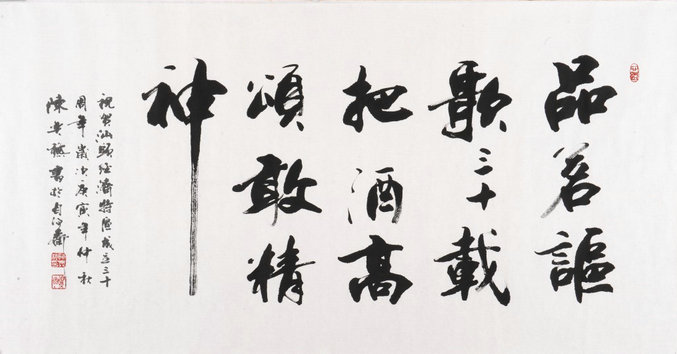 品茗謳
歌三十載
把酒高
頌敢精
神
祝賀汕頭經濟特區成立三十
周年歲次庚寅年仲秋
陳書於齋